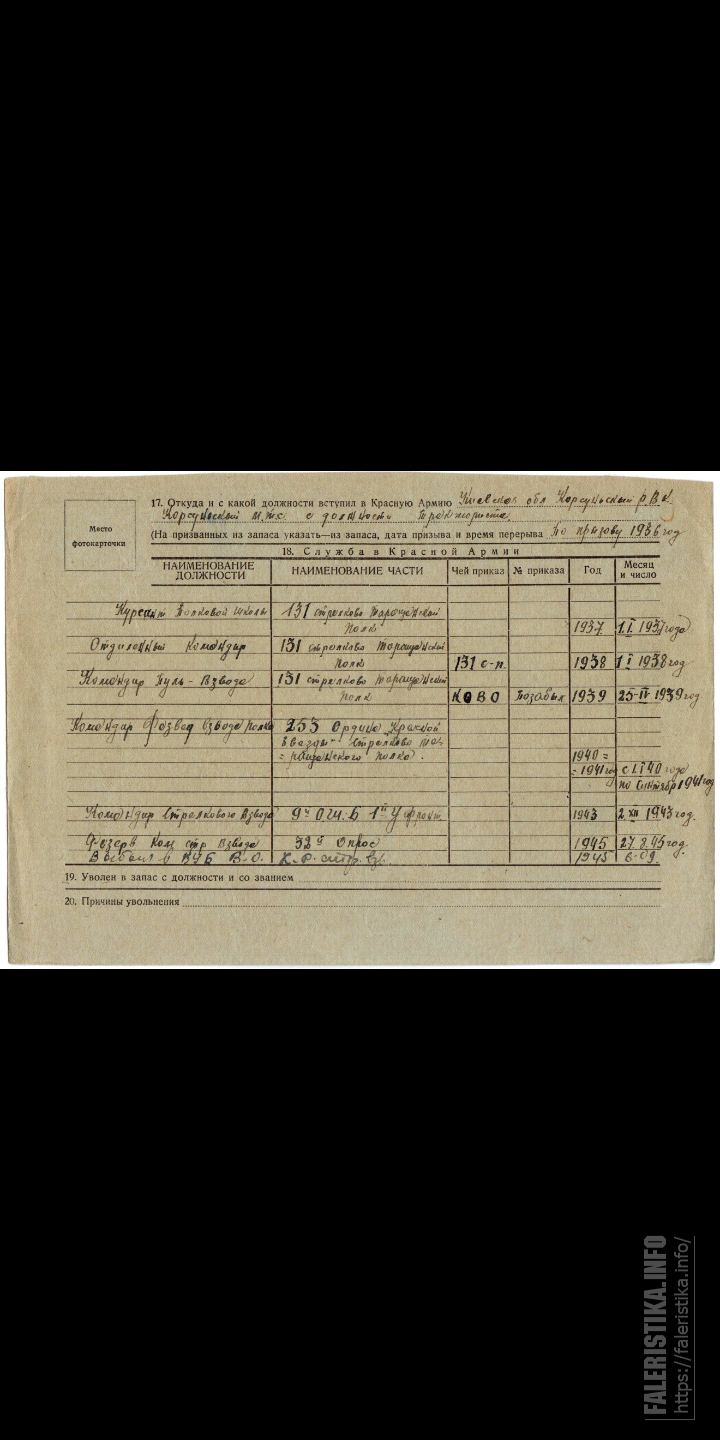 Место
фотокарточки
17. Откуда и с какой должности вступил в Красную Армию Киевская обл Корсуньский РВК.
Корсуньский м.т.с. с должности тракториста.
(На призванных из запаса указать—из запаса, дата призыва и время перерыва По призову 1936 год
18. Служба в Красной Армии
НАИМЕНОВАНИЕ ДОЛЖНОСТИ НАИМЕНОВАНИЕ ЧАСТИ Чей приказ № приказа Год Месяц и число
Курсант Полковой школы 131 стрелково Таращанский
полк 1937 1.I. 1937 года
Отделеный Командир 131 стрелково Таращанский
полк 131 с-п. 1938 1 I 1938 год
Командир Пуль-Взвода 131 стрелково Таращанский
полк КОВО Позабыл 1939 25-IV-1939 год
Командир взвода полка 253 Ордина Красной
Звезды- Стрелково Та=
=ращанского полка. 1940 =
= 1941 год с 1.I 40 года
по Сентябрь 1941 год
Командир Стрелкового Взвода 9й 1й У фронт 1943 2. XII 1943 год.
Резерв Ком стр Взвода 32й Опрос 1945 27.2.45 год.
В.О. К.Р. стр. вз. 1945 6-09.
19. Уволен в запас с должности и со званием
20. Причины увольнения
FALERISTIKA.INFO
https://faleristika.info/